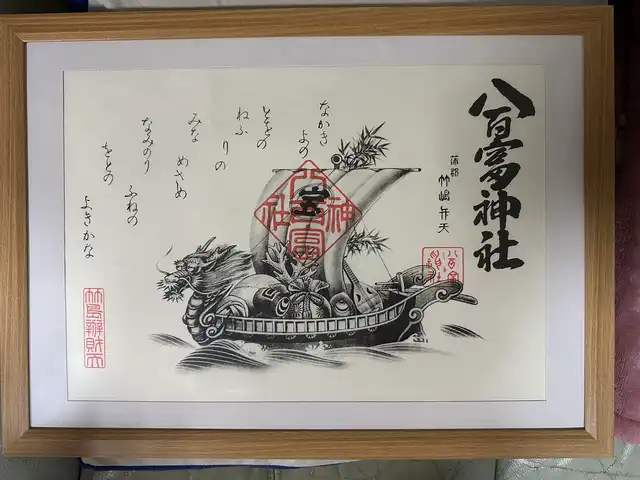 八百富神社
蒲郡
竹嶋弁天
なかき
よの
とをの
ねふ
りの
みな
めさめ
なみのり
ふねの
をとの
よきかな
宝
八百富神社
竹島辨財天